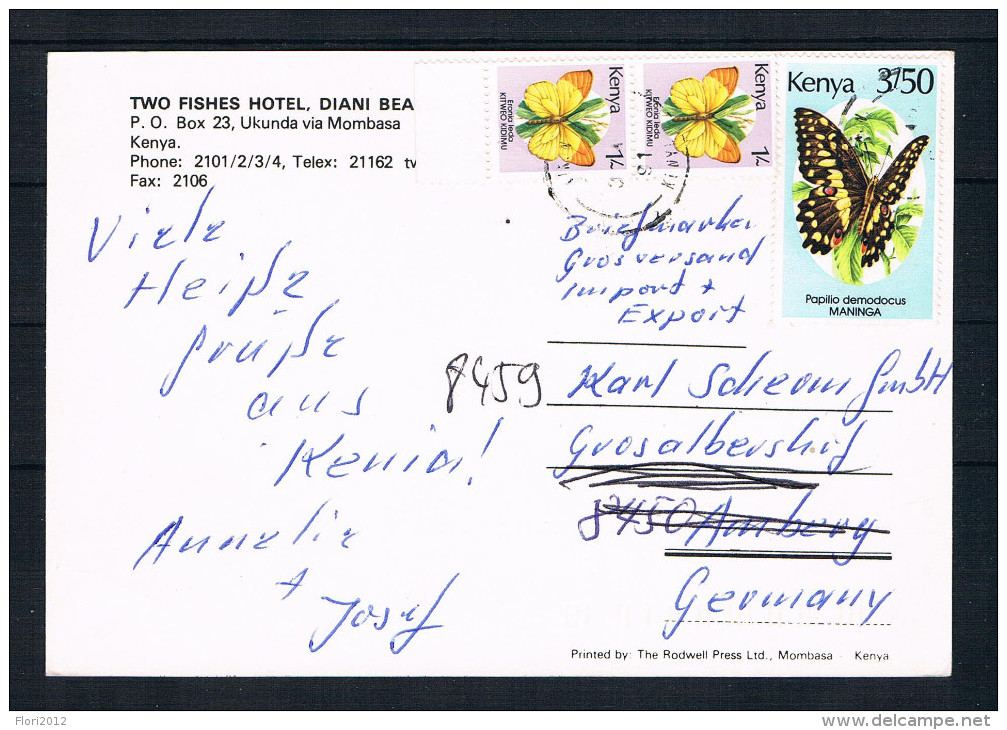 TWO FISHES HOTEL, DIANI BEA
P. O. Box 23, Ukunda via Mombasa
Kenya.
Phone: 2101/2/3/4, Telex: 21162
Fax: 2106
Kenya
1/-
Eronia leda
KITWEO KIDIMU
Kenya
1/-
Eronia leda
KITWEO KIDIMU
Kenya 3/50
Papilio demodocus
MANINGA
Viele
Heiße
grüße
aus
Kenia!
Annelie
+
Josef
Briefmarken
Grosversand
Import +
Export
8459
Karl GmbH
Grosalbershof
8450 Amberg
Germany
Printed by: The Rodwell Press Ltd., Mombasa - Kenya
Flori2012
delcampe.net